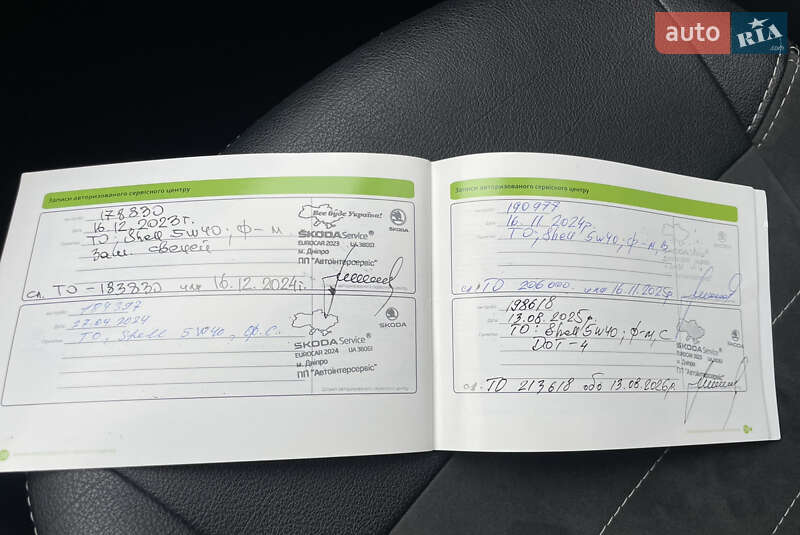 auto RIA
.com
Записи авторизованого сервісного центру
178830
16.12.2023г.
ТО; Shell 5W40; Ф-м.
Зам. свечей
сл. ТО - 183830 или 16.12.2024г.
Все буде Україна!
ŠKODA Service®
EUROCAR 2023 UA 38051
м. Дніпро
ПП "Автоінтерсервіс"
ŠKODA
184397
Дата 27.04.2024
ТО, Shell 5W40, Ф.С.
ŠKODA Service®
EUROCAR 2024 UA 38051
м. Дніпро
ПП "Автоінтерсервіс"
ŠKODA
Записи авторизованого сервісного центру
190977
16.11.2024р.
ТО; Shell 5W40; Ф-м, в
сл. ТО 206000 или 16.11.2025р.
198618
Дата 13.08.2025р.
ТО: Shell 5W40; Ф-м, С
DOT-4
сл. ТО 213618 або 13.08.2026р.
ŠKODA Service®
м. Дніпро
ПП "Автоінтерсервіс"